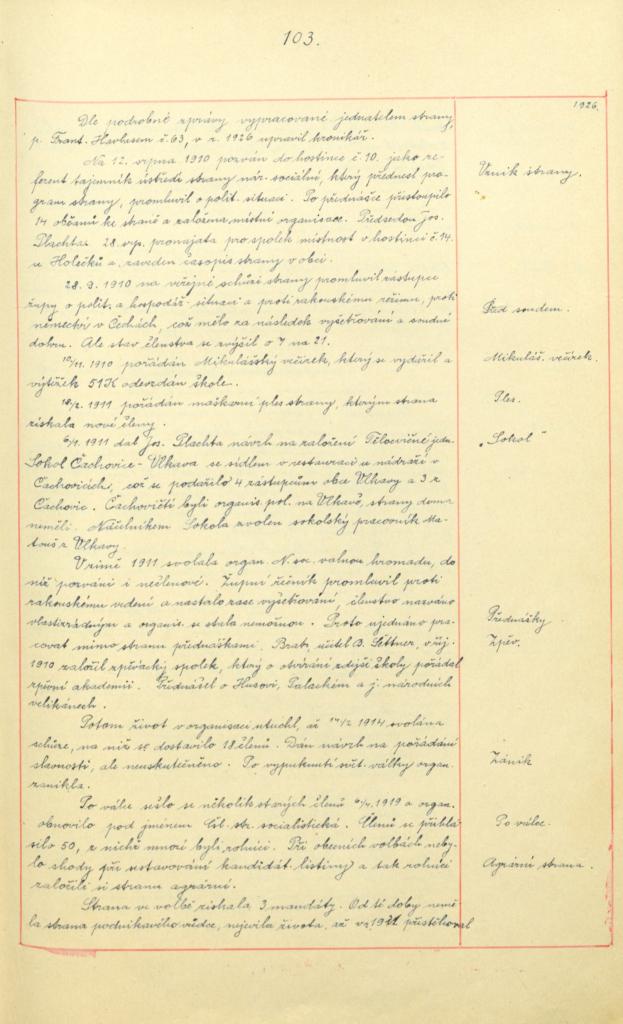 103.
1926.
Dle podrobné zprávy vypracované jednatelem strany,
p. Frant. Havlasem č. 63, v r. 1926 upravil kronikář.
Na 12. srpna 1910 pozván do hostince č. 10. jako re-
ferent tajemník ústředí strany nár. sociální, který přednesl pro-
gram strany, promluvil o polit. situaci. Po přednášce přistoupilo
14 občanů ke straně a založena místní organisace. Předsedou Jos.
Plachta. 28. srp. pronajata pro spolek místnost v hostinci č. 14.
u Holečků a zaveden časopis strany v obci.
Vznik strany.
28. 9. 1910 na veřejné schůzi strany promluvil zástupce
župy o polit. a hospodář. situaci a proti rakouskému režimu, proti
němectví v Čechách, což mělo za následek vyšetřování a soudní
dohru. Ale stav členstva se zvýšil o 7 na 21.
Před soudem.
/11. 1910 pořádán Mikulášský večírek, který se vydařil a
výtěžek 51K odevzdán škole.
Mikuláš. večírek.
18/2. 1911 pořádán maškarní ples strany, kterým strana
získala nové členy.
Ples.
6/1. 1911 dal Jos. Plachta návrh na založení Tělocvičné jedn.
Sokol Čachovice - Vlkava se sídlem v restauraci u nádraží v
Čachovicích, což se podařilo 4 zástupcům obce Vlkavy a 3 z
Čachovic. Čachovičtí byli organis. pol. na Vlkavě, strany doma
neměli. Náčelníkem Sokola zvolen sokolský pracovník Ma-
touš z Vlkavy.
„Sokol"
V zimě 1911 svolala organ. N. soc. valnou hromadu, do
níž pozváni i nečlenové. Župní řečník promluvil proti
rakouskému vedení a nastalo zase vyšetřování, členstvo nazváno
vlastizrádným a organis. se stala nemožnou. Proto ujednáno pra-
covat mimo stranu přednáškami. Bratr, učitel B. Sittner, v říj.
1910 založil zpěvácký spolek, který o otvírání zdejší školy pořádal
zpěvní akademii. Přednášel o Husovi, Palackém a j. národních
velikánech.
Přednášky
Zpěv.
Potom život v organisaci utuchl, až /2 1914 svolána
schůze, na níž se dostavilo 18 členů. Dán návrh na pořádání
slavnosti, ale neuskutečněno. Po vypuknutí svět. války organ.
zanikla.
Zánik
Po válce sešlo se několik starých členů 6/4. 1919 a organ.
obnovilo pod jménem Čsl. str. socialistická. Členů se přihlá-
silo 50, z nichž mnozí byli rolníci. Při obecních volbách neby-
lo shody při sestavování kandidát. listiny a tak rolníci
založili si stranu agrární.
Po válce.
Agrární strana.
Strana ve volbě získala 3 mandáty. Od té doby nemě-
la strana podnikavého vůdce, nejevila života, až v r. 1921 přistěhoval